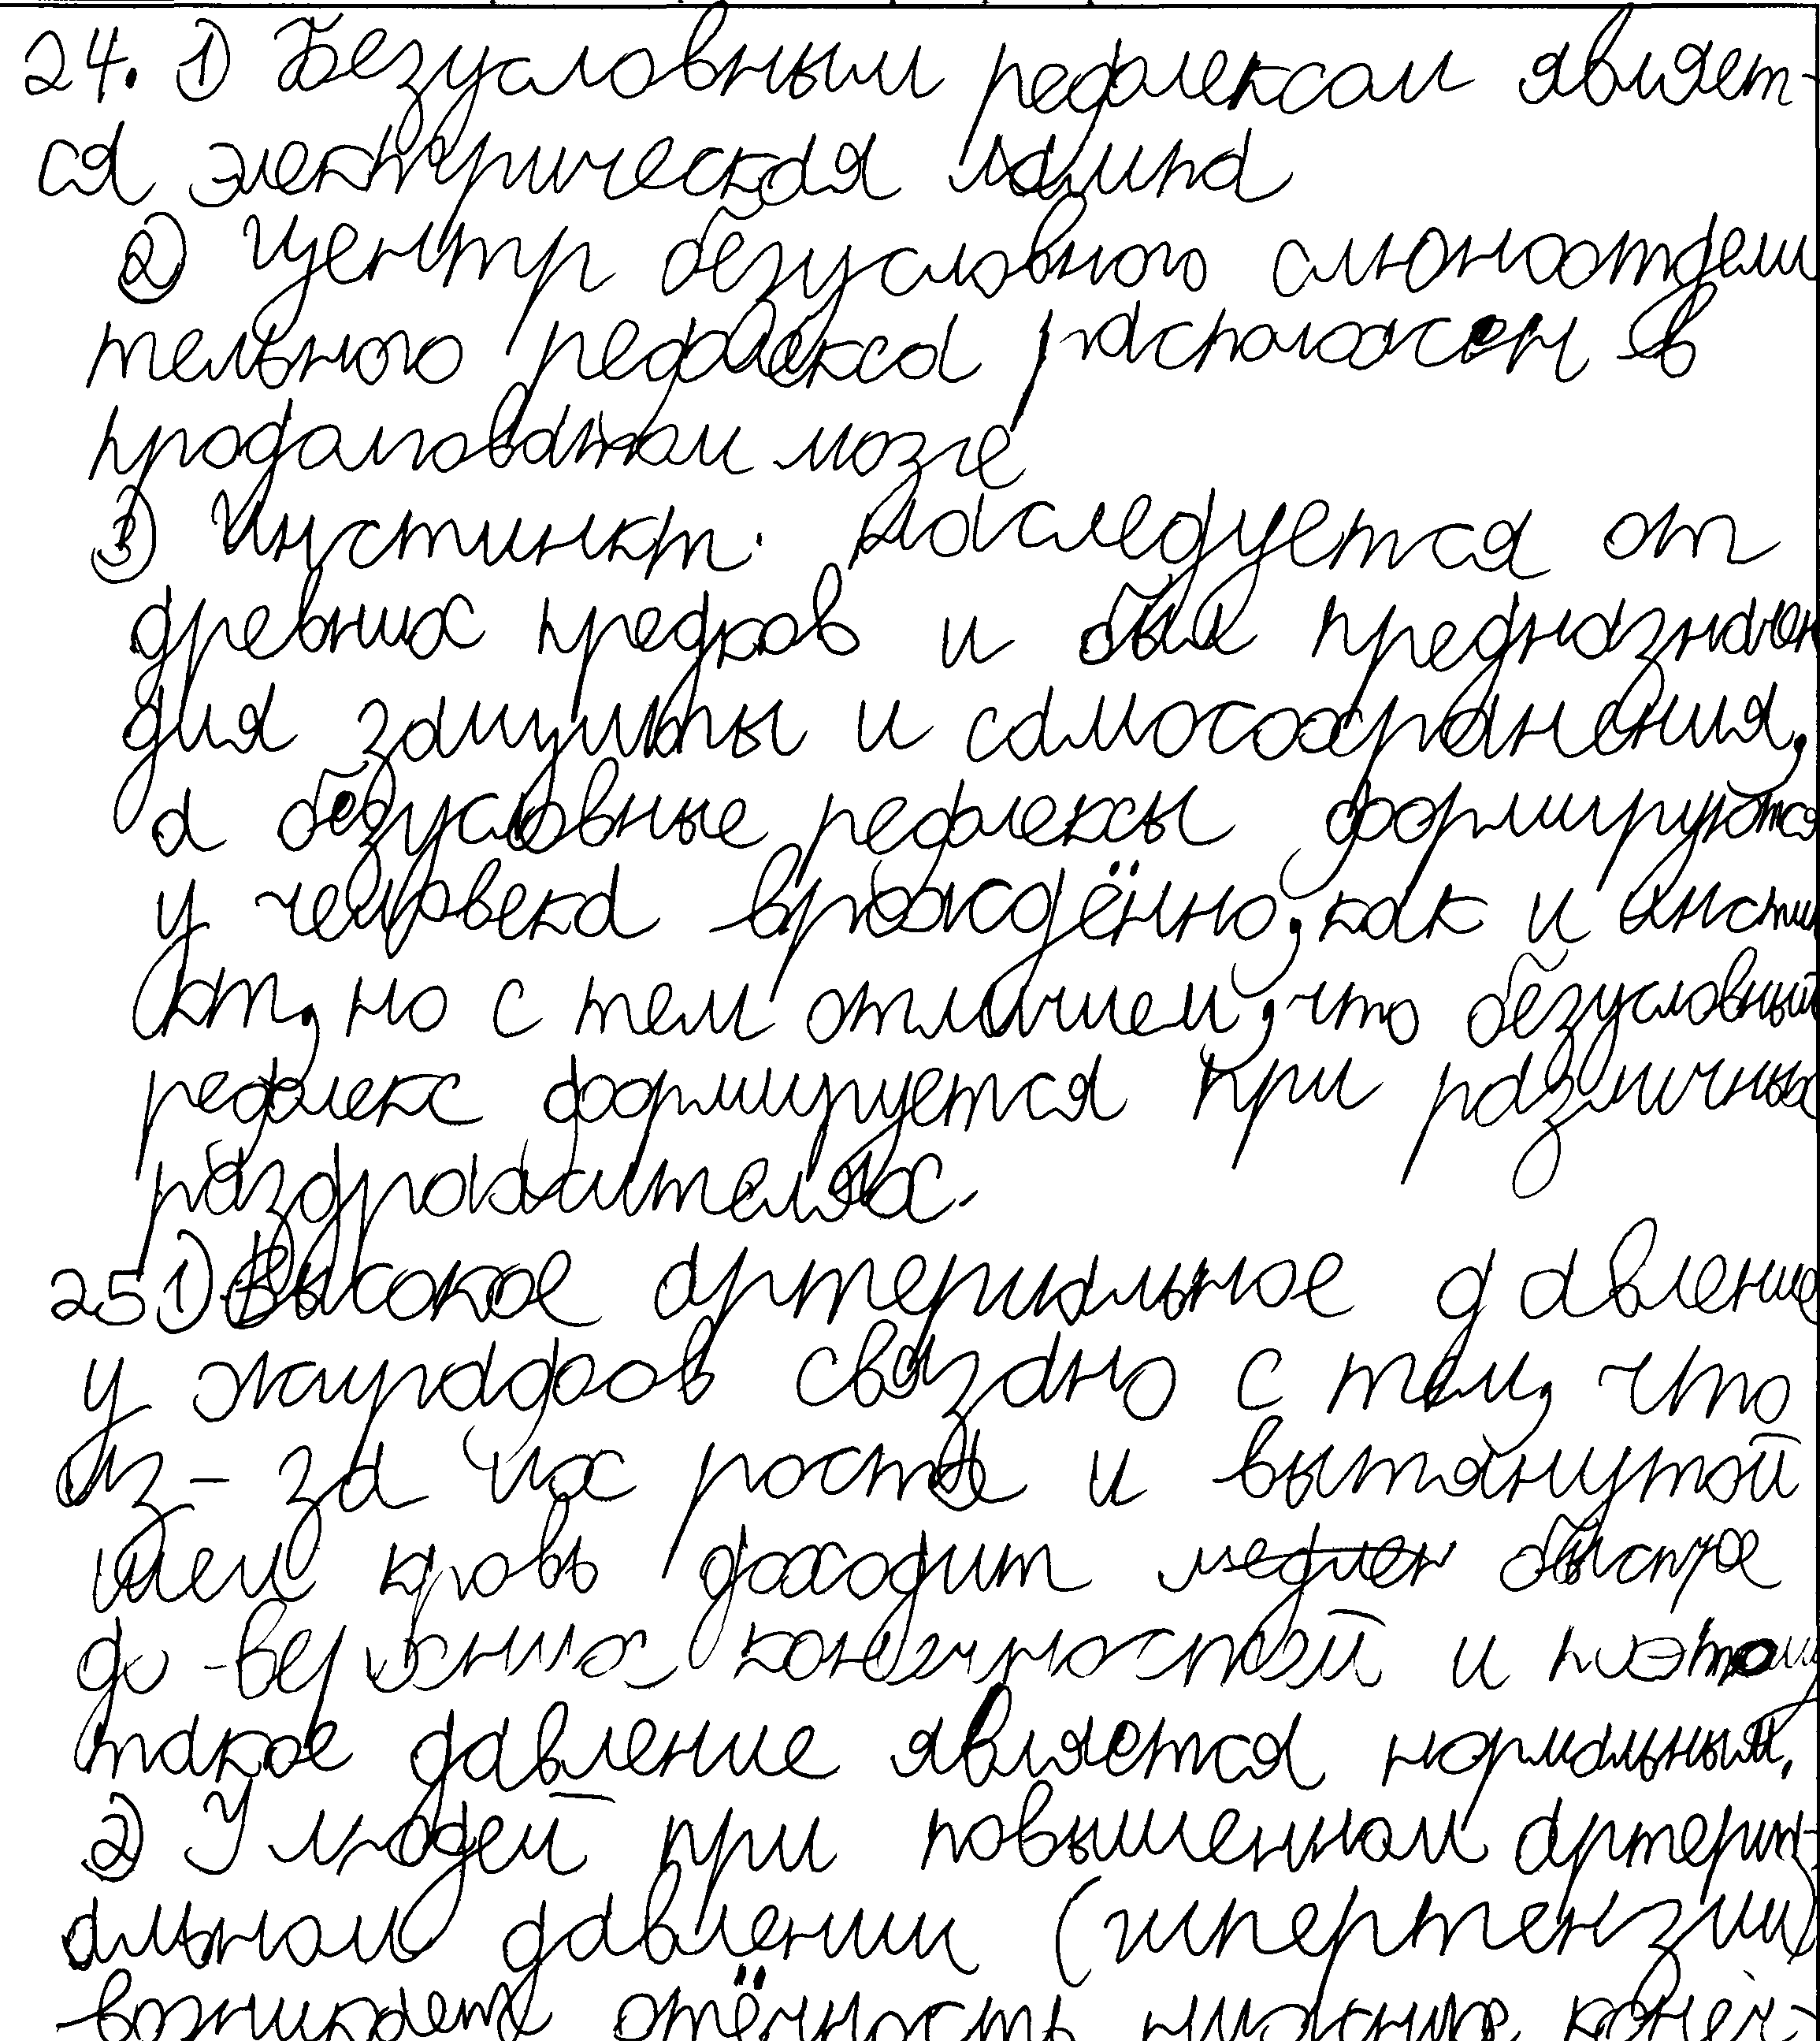 24. 1) Безусловным рефлексом являет-
ся электрическая лампа
2) Центр безусловного слюноотдели
тельного рефлекса расположен в
продолговатом мозге
3) Инстинкт наследуется от
древних предков и был предназначен
для защиты и самосохранения,
а безусловные рефлексы формируются
у человека врождённо, как и инсти
кт, но с тем отличием, что безусловный
рефлекс формируется при различных
раздражителях.
25 1) Высокое артериальное давление
у жирафов связано с тем, что
из-за их роста и вытянутой
шеи кровь доходит медлен быстрее
до верхних конечностей и поэтому
такое давление является нормальным.
2) У людей при повышенном артери-
альном давлении (гипертензии)
возникает отёчность нижних конеч-